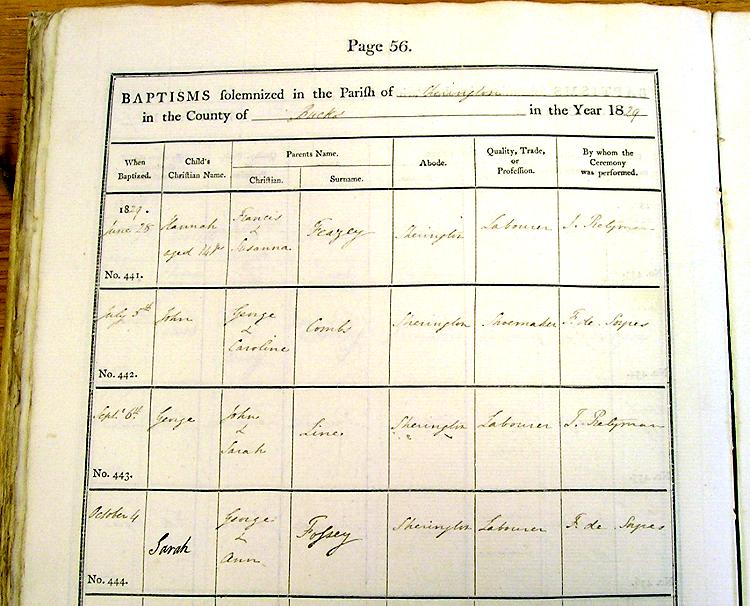 Page 56.
BAPTISMS ſolemnized in the Pariſh of Sherington
in the County of Bucks in the Year 1829
When Baptized. Child's Chriſtian Name. Parents Name. Abode. Quality, Trade, or Profeſſion. By whom the Ceremony was performed.
Chriſtian. Surname.
1829.
June 28 Hannah Francis & Susanna Feazey Sherington Labourer J. Pretyman
aged 14
No. 441.
July 5th John George & Caroline Combs Sherington Shoemaker F. de
No. 442.
Septr 6th George John & Sarah Line Sherington Labourer J. Pretyman
No. 443.
October 4 Sarah George & Ann Foſsey Sherington Labourer F. de
No. 444.